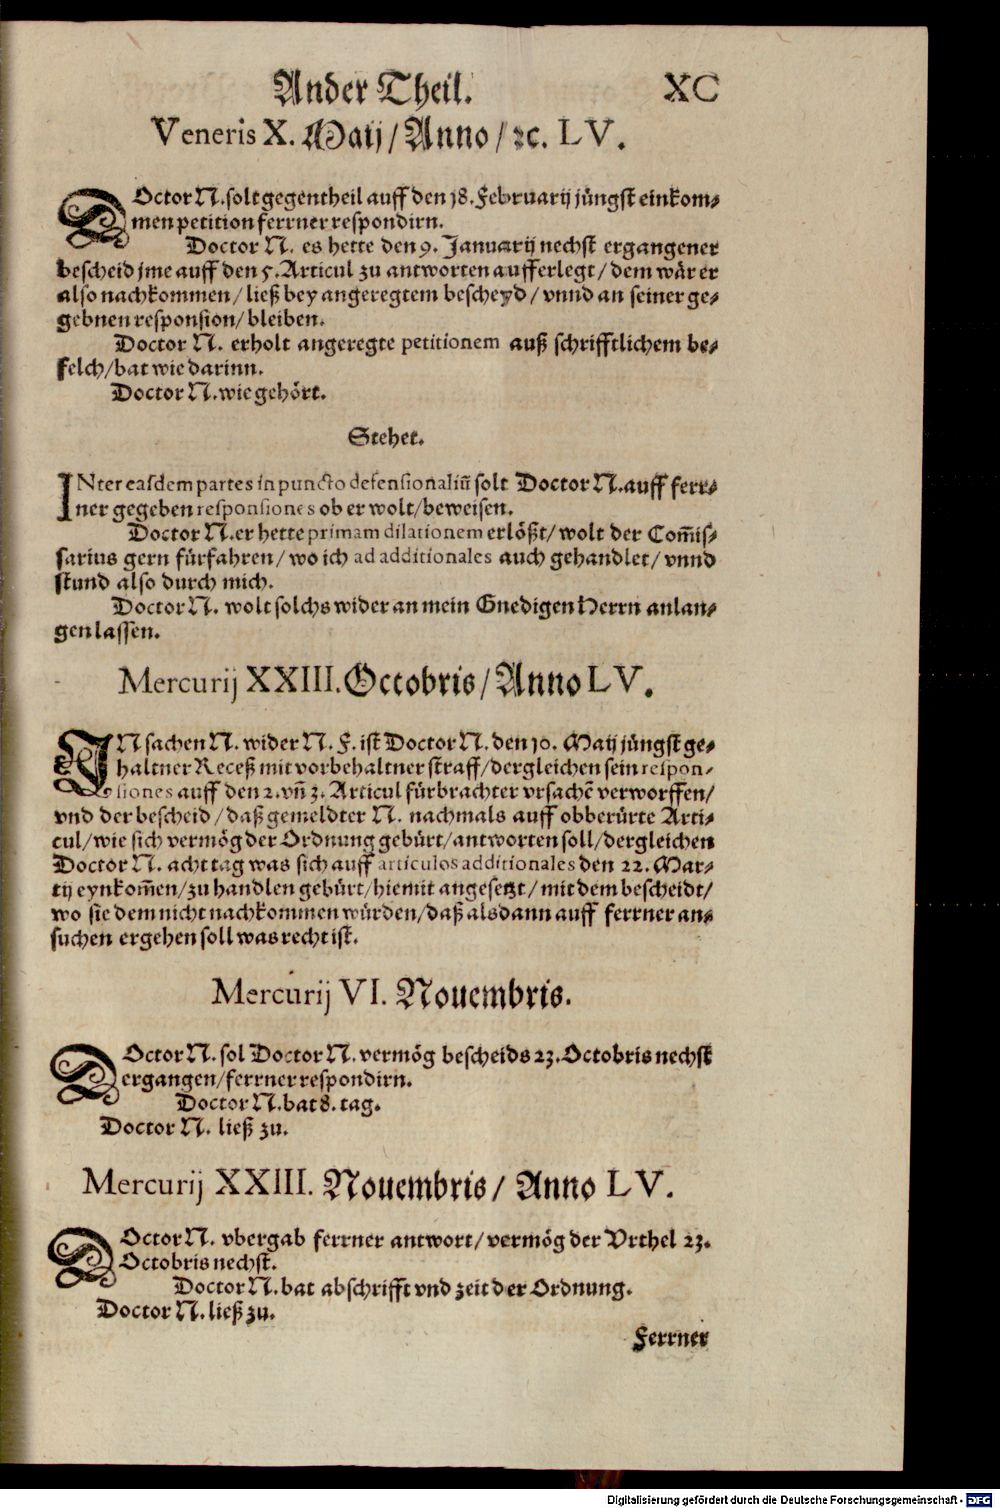 Ander Theil. XC
Veneris X. Maij / Anno / ꝛc. LV.
DOctor N. solt gegentheil auff den 18. Februarij jüngst einkom⸗
men petition ferrner respondirn.
Doctor N. es hette den 9. Januarij nechst ergangener
bescheid jme auff den 5. Articul zu antworten aufferlegt / dem wär er
also nachkommen / ließ bey angeregtem bescheyd / vnnd an seiner ge⸗
gebnen responsion / bleiben.
Doctor N. erholt angeregte petitionem auß schrifftlichem be⸗
felch / bat wie darinn.
Doctor N. wie gehört.
Stehet.
INter easdem partes in puncto defensionaliū solt Doctor N. auff ferr⸗
ner gegeben responsiones ob er wolt / beweisen.
Doctor N. er hette primam dilationem erlößt / wolt der Com̄is⸗
sarius gern fürfahren / wo ich ad additionales auch gehandlet / vnnd
stund also durch mich.
Doctor N. wolt solchs wider an mein Gnedigen Herrn anlan⸗
gen lassen.
Mercurij XXIII. Octobris / Anno LV.
IN sachen N. wider N. F. ist Doctor N. den 10. Maij jüngst ge⸗
haltner Receß mit vorbehaltner straff / dergleichen sein respon-
siones auff den 2. vn̄ 3. Articul fürbrachter vrsachē verworffen /
vnd der bescheid / daß gemeldter N. nachmals auff obberürte Arti⸗
cul / wie sich vermög der Ordnung gebürt / antworten soll / dergleichen
Doctor N. acht tag was sich auff articulos additionales den 22. Mar⸗
tij eynkom̄en / zu handlen gebürt / hiemit angesetzt / mit dem bescheidt /
wo sie dem nicht nachkommen würden / daß alsdann auff ferrner an⸗
suchen ergehen soll was recht ist.
Mercurij VI. Nouembris.
DOctor N. sol Doctor N. vermög bescheids 23. Octobris nechst
ergangen / ferrner respondirn.
Doctor N. bat 8. tag.
Doctor N. ließ zu.
Mercurij XXIII. Nouembris / Anno LV.
DOctor N. vbergab ferrner antwort / vermög der Vrthel 23.
Octobris nechst.
Doctor N. bat abschrifft vnd zeit der Ordnung.
Doctor N. ließ zu.
Ferrner
Digitalisierung gefördert durch die Deutsche Forschungsgemeinschaft - DFG